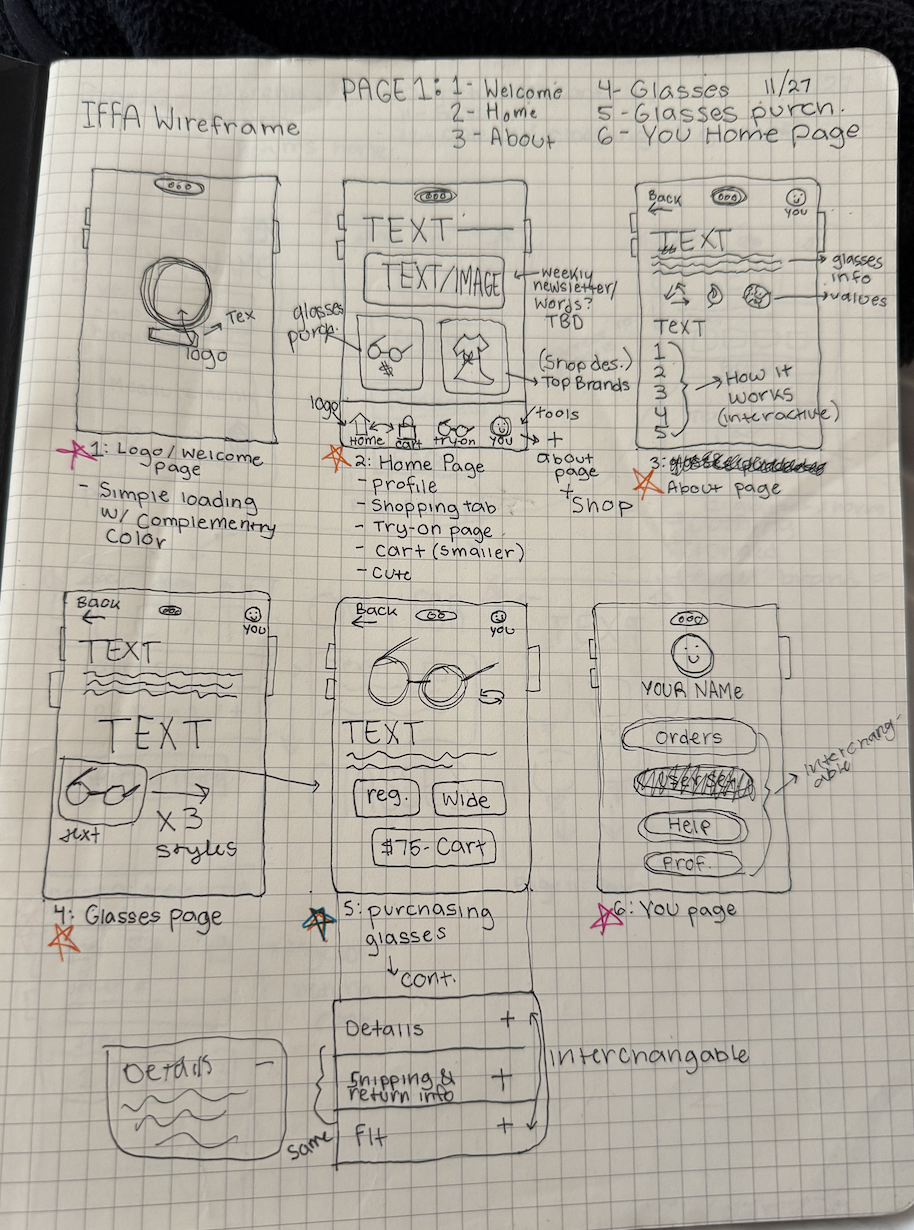 IFFA Wireframe
PAGE 1: 1- Welcome
2- Home
3- About
4- Glasses 11/27
5- Glasses purch.
6- You Home Page
Tex
logo
1: Logo/welcome
page
- Simple loading
w/ Complementry
Color
TEXT
TEXT/IMAGE
weekly
newsletter/
words?
TBD
glasses
purch.
$
(Shop des.)
Top Brands
logo
Home
cart
try-on
YOU
tools
+
about
page
+
Shop
2: Home Page
- profile
- Shopping tab
- Try-on page
- cart (smaller)
- cute
Back
YOU
TEXT
glasses
info
values
TEXT
1
2
3
4
5
How it
works
(interactive)
3:
About page
Back
YOU
TEXT
TEXT
text
X3
styles
4: Glasses page
Back
YOU
TEXT
reg.
Wide
$75- Cart
5: purchasing
glasses
cont.
Details +
Shipping &
return info +
Fit +
interchangable
same
Details -
YOUR NAMe
Orders
Help
Prof.
interchang-
able
6: You page